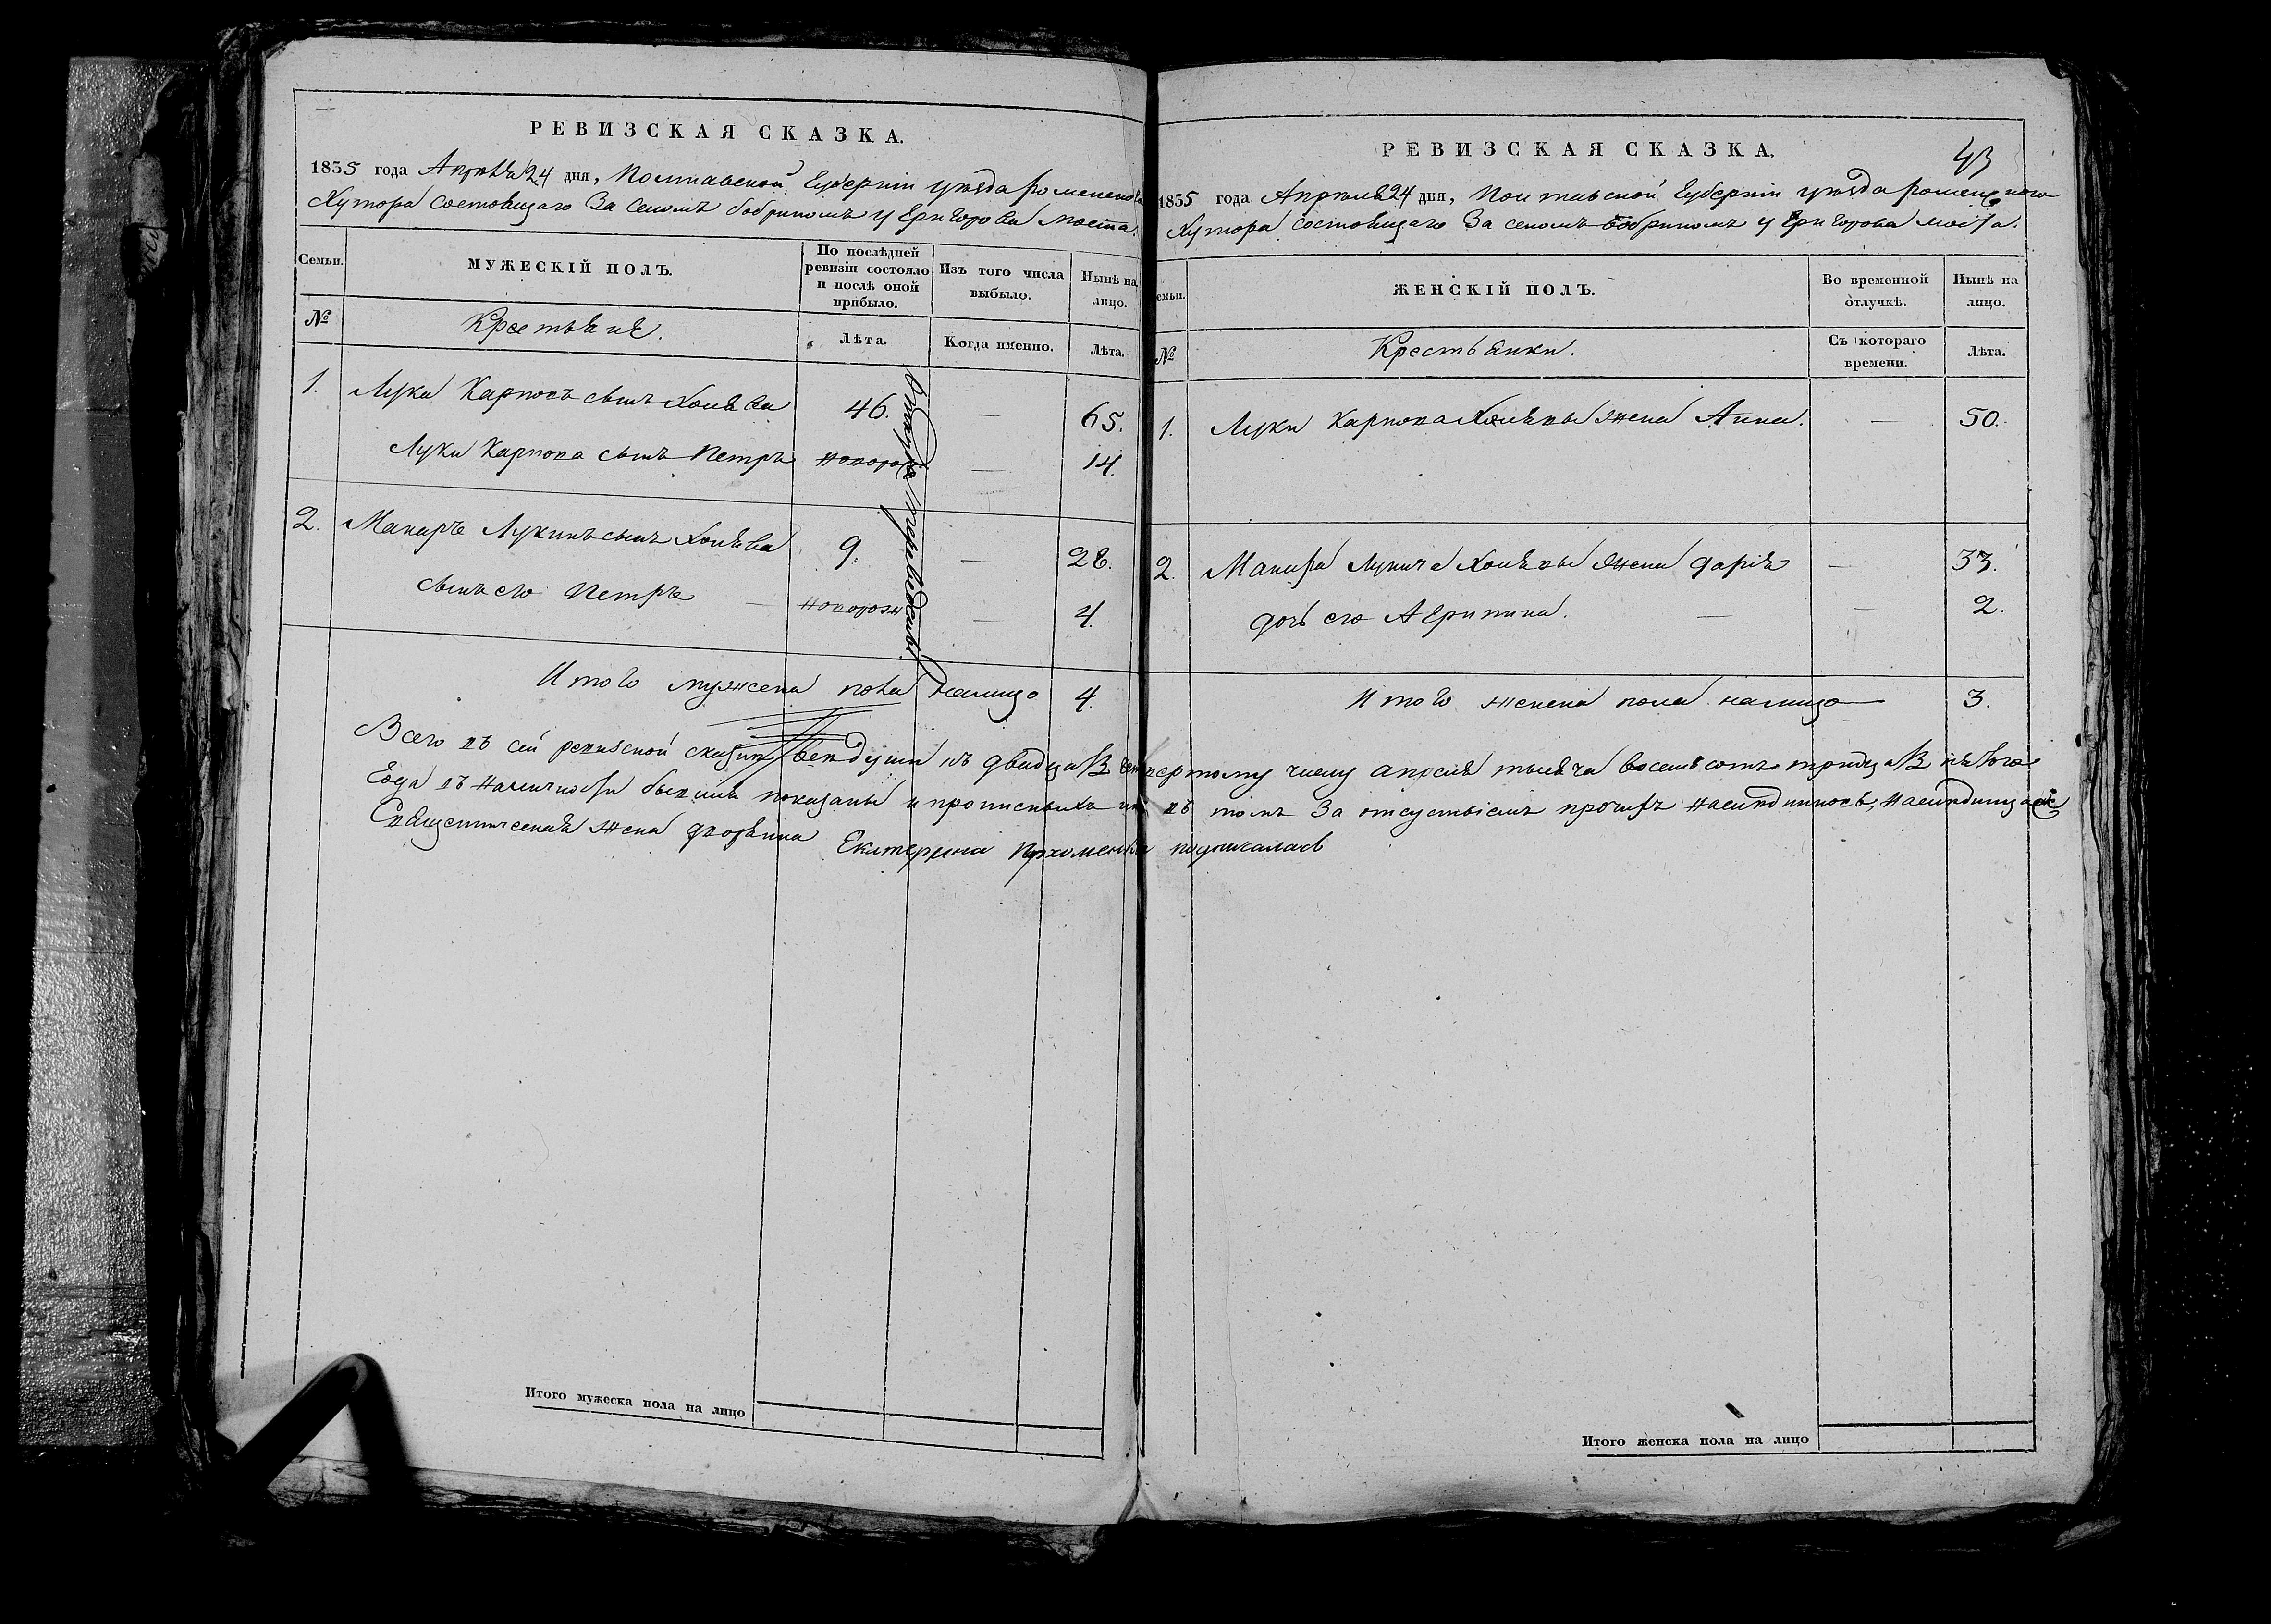 РЕВИЗСКАЯ СКАЗКА.
1835 года Апреля 24 дня, Полтавской Губернiи уезда роменского
Хутора Состоящаго За селомъ бобрикомъ у Григорова моста.
Семьи.
МУЖЕСКIЙ ПОЛЪ.
По послѣдней ревизiи состояло и послѣ оной прибыло.
Изъ того числа выбыло.
Нынѣ на лицо.
№
Крестьяне.
Лѣта.
Когда именно.
Лѣта.
1. Лука Карповъ сынъ 46. — 65.
Луки Карпова сынъ Петръ новорож — 14.
2. Макаръ Лукинъ сынъ 9. — 28.
сынъ его Петръ — новорож — 4.
Итого мужеска пола налицо 4.
Итого мужеска пола на лицо
РЕВИЗСКАЯ СКАЗКА.
43
1835 года Апреля 24 дня, Полтавской Губернiи уезда роменского
Хутора Состоящаго За селомъ бобрикомъ у Григорова моста.
Семьи.
ЖЕНСКIЙ ПОЛЪ.
Во временной отлучкѣ.
Нынѣ на лицо.
№
Крестьянки.
Съ котораго времени.
Лѣта.
1. Луки Карпова жена Анна. — 50.
2. Макара Лукича жена Дарiя — 33.
дочь его Агрипина. — — 2.
Итого женска пола налицо 3.
Всего въ сей ревизской сказки душъ къ двадцать четвертому числу апреля тысяча восемьсотъ тридцать пятого
Года въ наличности показаны и прописныхъ въ томъ За отсуствiемъ прочихъ наследниковъ, наследница
Священическая жена Екатерина Пархоменкова подписалась
Итого женска пола на лицо